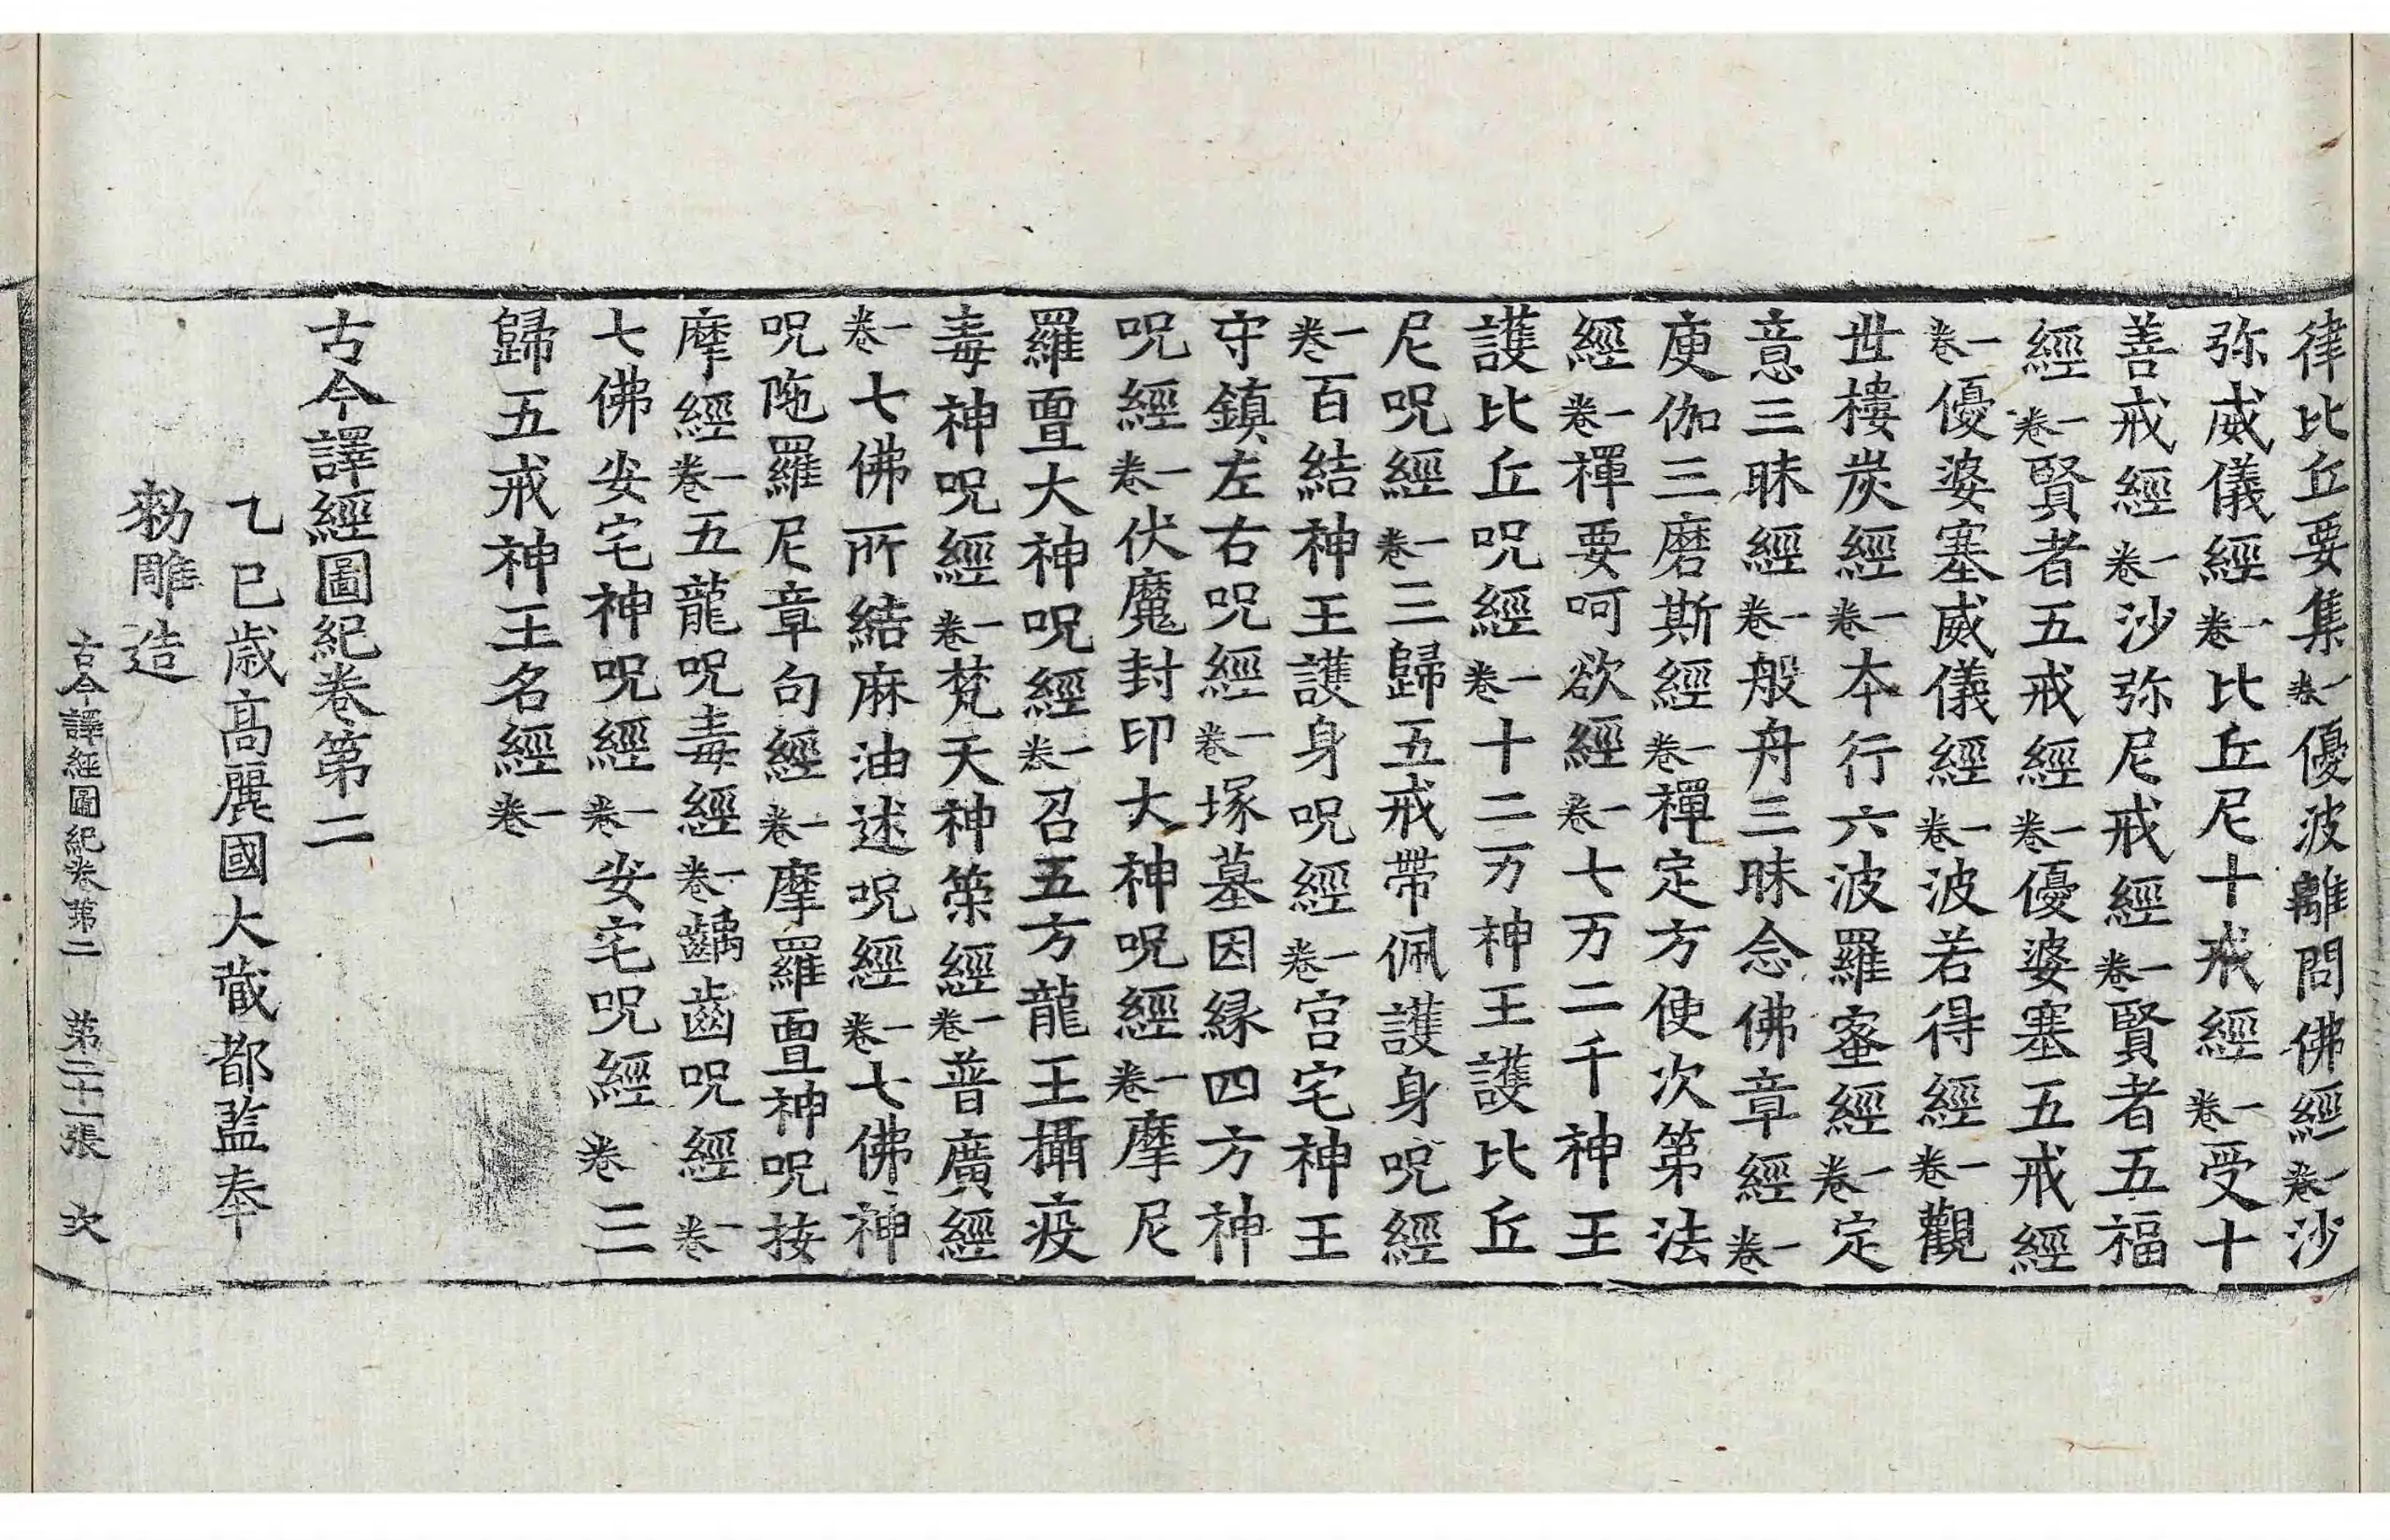 律比丘要集一卷優波離問佛經一卷沙
弥威儀經一卷比丘尼十戒經一卷受十
善戒經一卷沙弥尼戒經一卷賢者五福
經一卷賢者五戒經一卷優婆塞五戒經
一卷優婆塞威儀經一卷波若得經一卷觀
世樓炭經一卷本行六波羅蜜經一卷定
意三昧經一卷般舟三昧念佛章經一卷
庾伽三磨斯經一卷禪定方便次第法
經一卷禪要呵欲經一卷七万二千神王
護比丘呪經一卷十二万神王護比丘
尼呪經一卷三歸五戒帶佩護身呪經
一卷百結神王護身呪經一卷宮宅神王
守鎮左右呪經一卷塚墓因緣四方神
呪經一卷伏魔封印大神呪經一卷摩尼
羅亶大神呪經一卷召五方龍王攝疫
毒神呪經一卷梵天神策經一卷普廣經
一卷七佛所結麻油述呪經一卷七佛神
呪陁羅尼章句經一卷摩羅亶神呪按
摩經一卷五龍呪毒經一卷齲齒呪經一卷
七佛安宅神呪經一卷安宅呪經卷三
歸五戒神王名經一卷
古今譯經圖紀卷第二
乙巳歳高麗國大藏都監奉
勑雕造
古今譯經圖紀卷第二 第二十一張 次